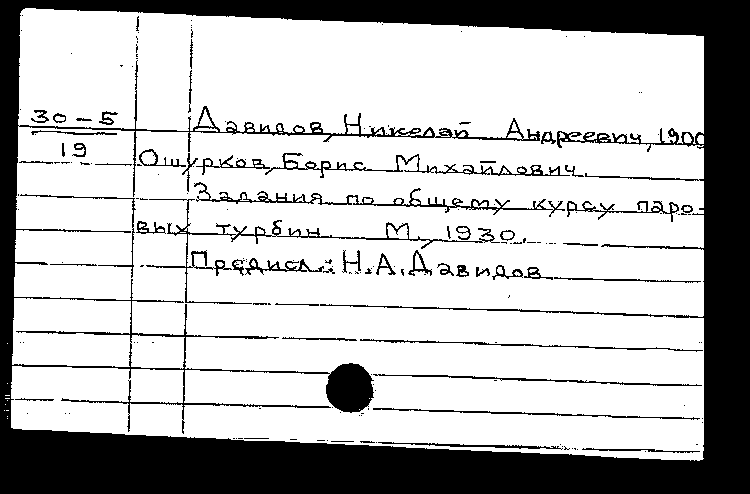 30-5
19
Давидов, Николай Андреевич, 1900
Ошурков, Борис Михайлович.
Задания по общему курсу паро-
вых турбин. М., 1930.
Предисл.: Н.А. Давидов